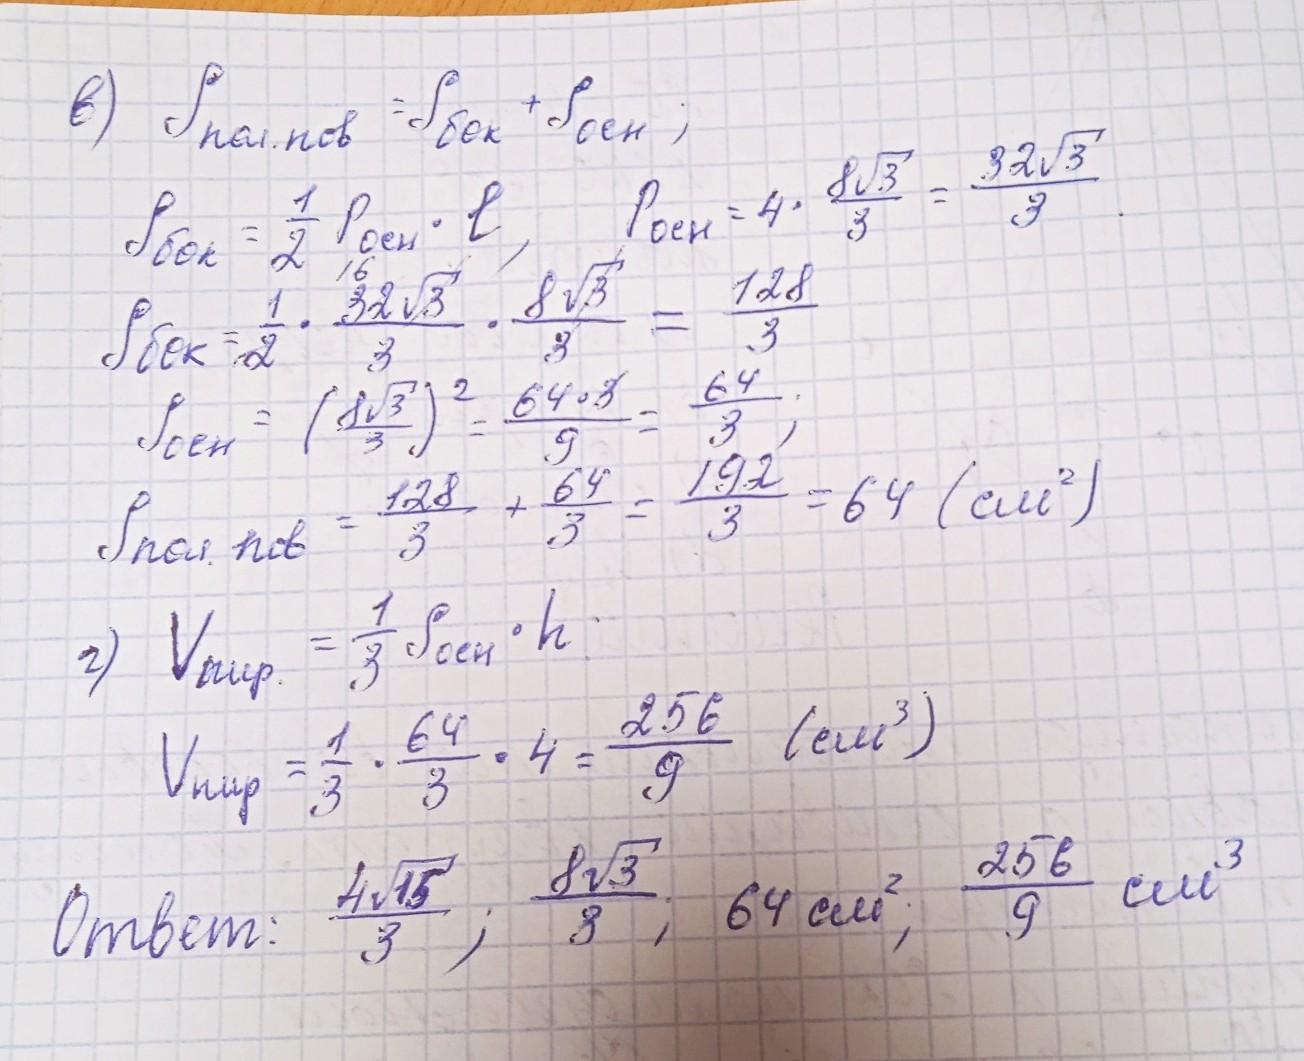 в) Sпол.пов = Sбок + Sосн ;
Sбок = 1/2 Pосн · l , Pосн = 4 · 8√3/3 = 32√3/3 .
16
Sбок = 1/2 · 32√3/3 · 8√3/3 = 128/3
Sосн = (8√3/3)² = 64·3/9 = 64/3 ;
Sпол. пов = 128/3 + 64/3 = 192/3 = 64 (см²)
г) Vпир. = 1/3 Sосн · h .
Vпир = 1/3 · 64/3 · 4 = 256/9 (см³)
Ответ: 4√15/3 ; 8√3/3 ; 64 см² ; 256/9 см³